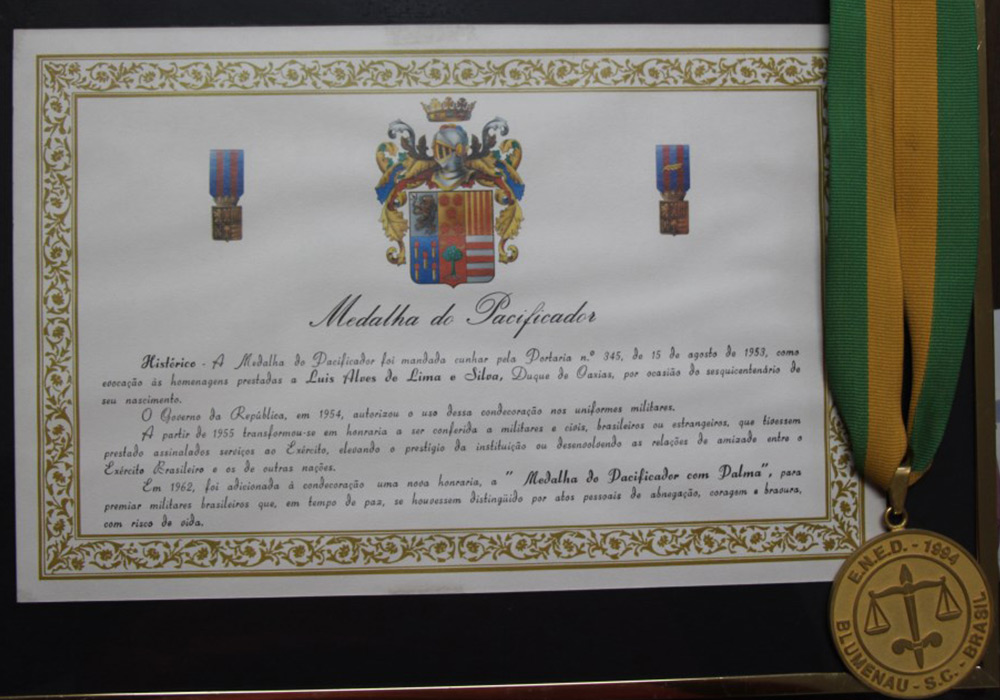 Medalha do Pacificador
Histórico - A Medalha do Pacificador foi mandada cunhar pela Portaria n.º 345, de 15 de agosto de 1953, como
evocação às homenagens prestadas a Luis Alves de Lima e Silva, Duque de Caxias, por ocasião do sesquicentenário de
seu nascimento.
O Governo da República, em 1954, autorizou o uso dessa condecoração nos uniformes militares.
A partir de 1955 transformou-se em honraria a ser conferida a militares e civis, brasileiros ou estrangeiros, que tivessem
prestado assinalados serviços ao Exército, elevando o prestígio da instituição ou desenvolvendo as relações de amizade entre o
Exército Brasileiro e os de outras nações.
Em 1962, foi adicionada à condecoração uma nova honraria, a " Medalha do Pacificador com Palma", para
premiar militares brasileiros que, em tempo de paz, se houvessem distingüido por atos pessoais de abnegação, coragem e bravura,
com risco de vida.
E.N.E.D. - 1994
BLUMENAU - S.C. - BRASIL